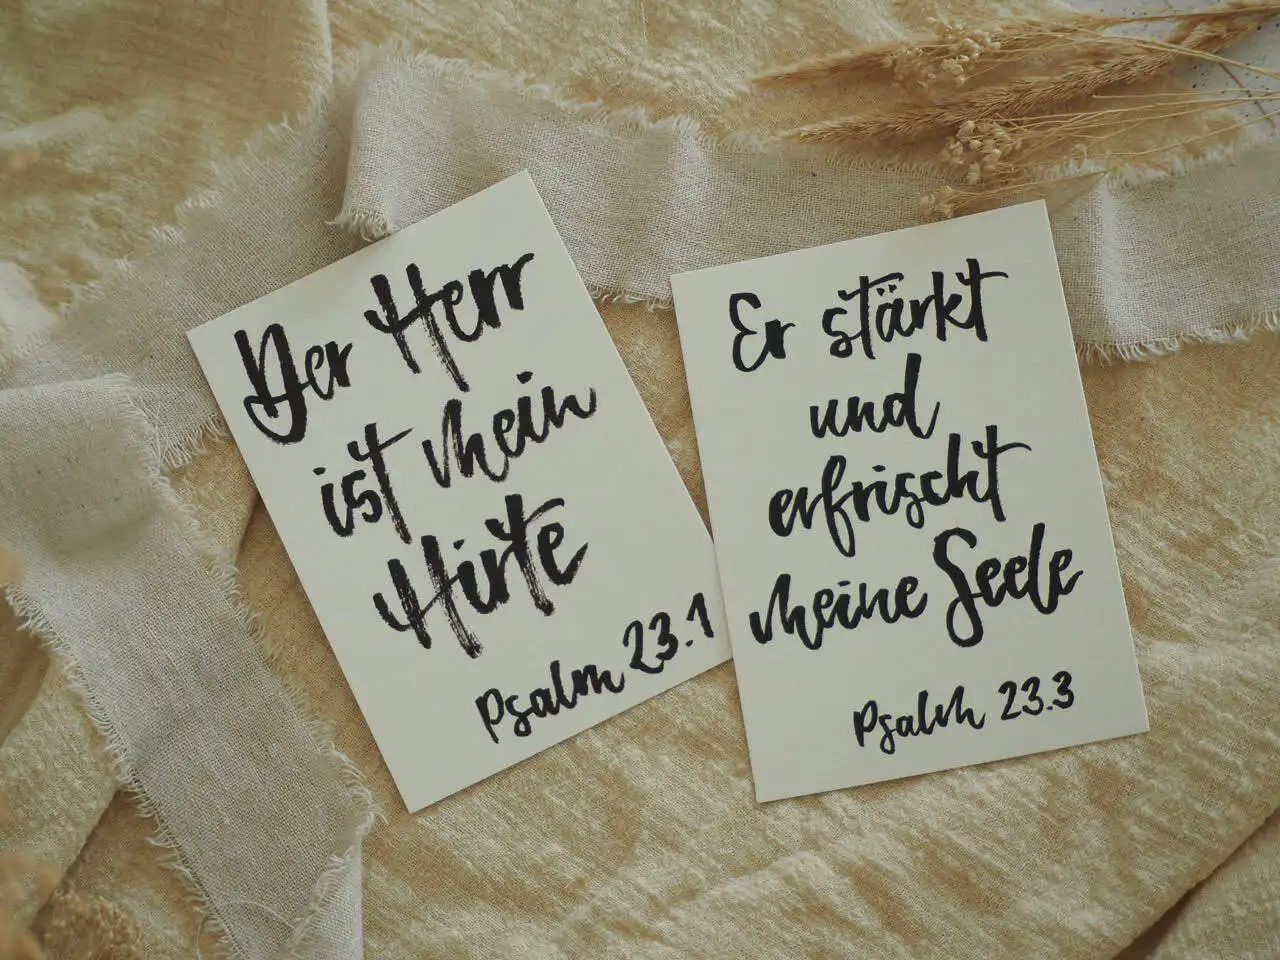 Der Herr
ist mein
Hirte
Psalm 23.1
Er stärkt
und
erfrischt
meine Seele
Psalm 23.3